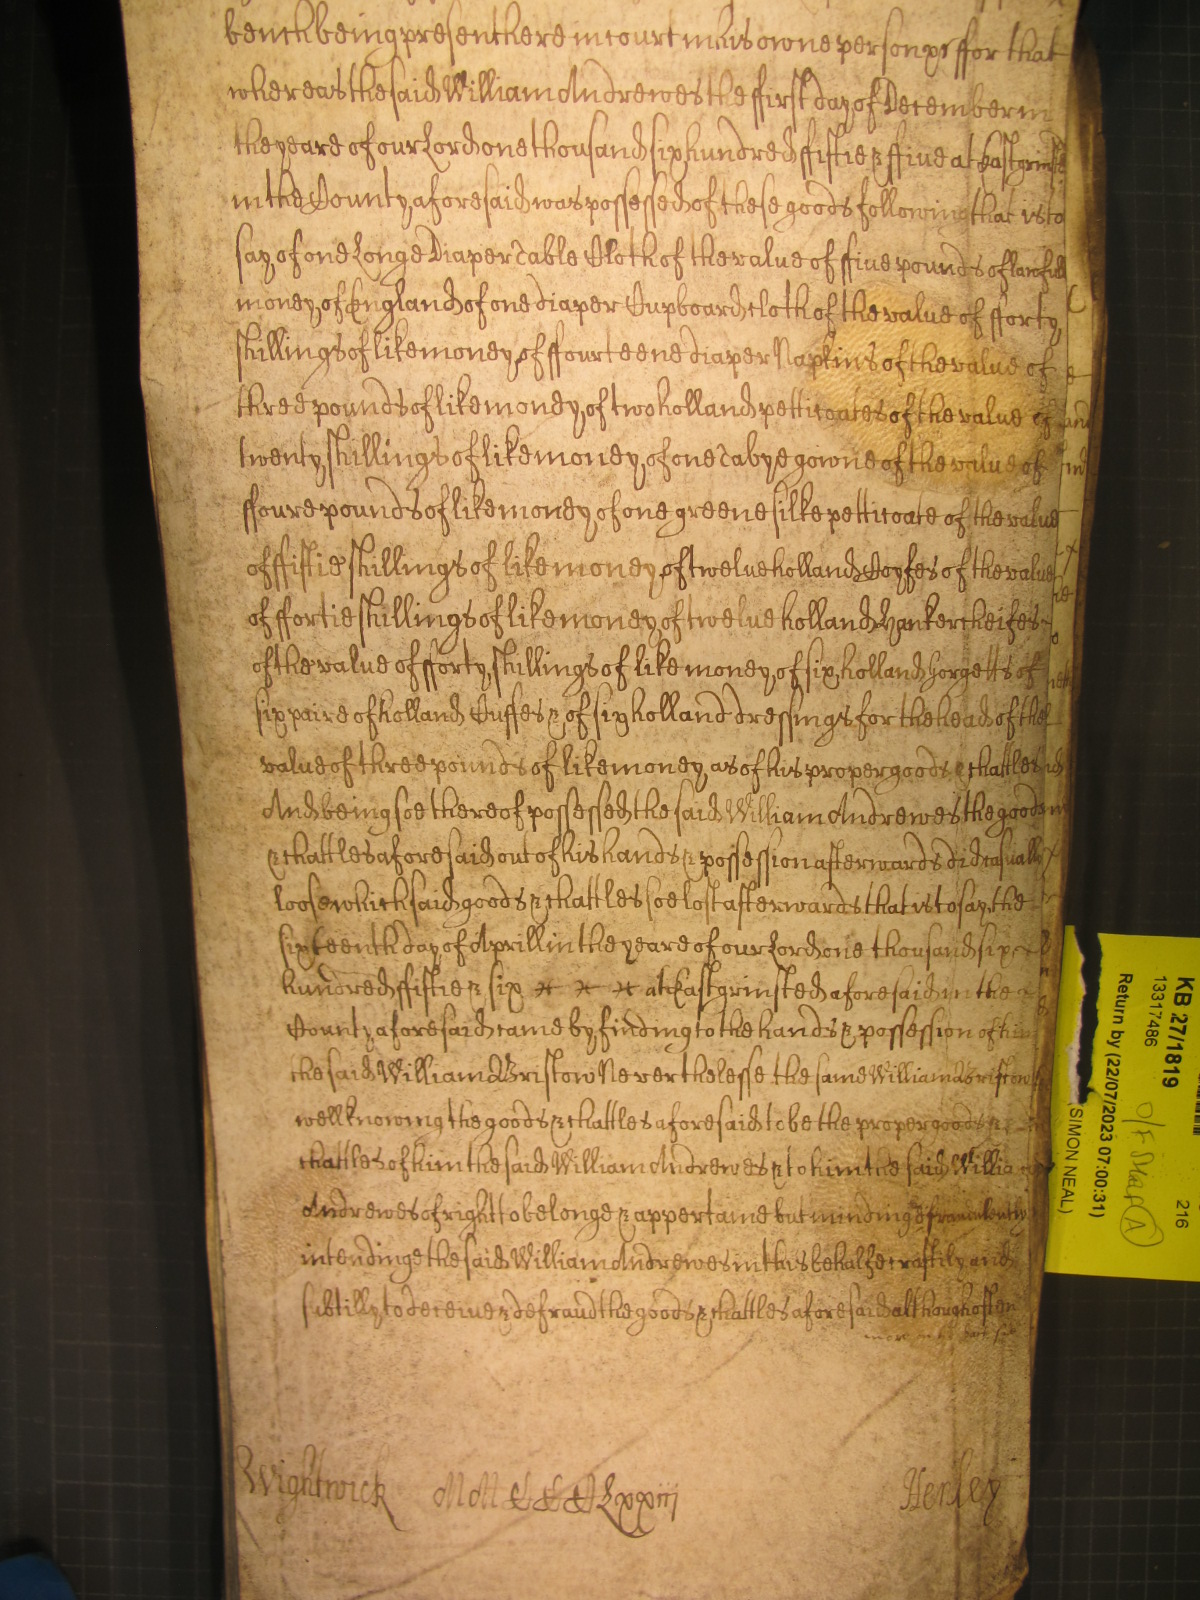 bench being present here in court in his owne person &c ffor that
whereas the said William Andrewes the ffirst day of December in
the yeare of our Lord one thousand six hundred ffiftie & ffive at Eastgrinsted
in the County aforesaid was possessed of these goods following that is to
say of one Longe Diaper Table Cloth of the value of ffive pounds of lawfull
money of England of one diaper Cupboard cloth of the value of fforty
shillings of like money of ffourteene diaper Napkins of the value of
three pounds of like money of two holland petticoates of the value of
twenty shillings of like money of one Tabye gowne of the value of
ffoure pounds of like money of one greene silke petticoate of the value
of ffiftie shillings of like money of twelve holland Coyfes of the value
of ffortie shillings of like money of twelve holland Hankercheifes
of the value of fforty shillings of like money of six holland Gorgetts of
six paire of holland Cuffes & of six holland dressings for the head of the
value of three pounds of like money as of his proper goods & chattles
And being soe thereof possessed the said William Andrewes the goods
& chattles aforesaid out of his hands & possession afterwards did casually
loose which said goods & chattles soe lost afterwards that is to say the
sixteenth day of Aprill in the yeare of our Lord one thousand six
hundred ffiftie & six at Eastgrinsted aforesaid in the
County aforesaid came by finding to the hands & possession of him
the said William Bristow Neverthelesse the same William Bristow
well knowing the goods & chattles aforesaid to be the proper goods &
chattles of him the said William Andrewes & to him the said William
Andrewes of right to belonge & appertaine but minding & fraudulently
intendinge the said William Andrewes in this behalfe craftily and
subtilly to deceive & defraud the goods & chattles aforesaid although often
more on the back side
Wightwick MMCCCCLxxiij Henley
KB 27/1819 216
13317486
Return by (22/07/2023 07:00:31)
SIMON NEAL)